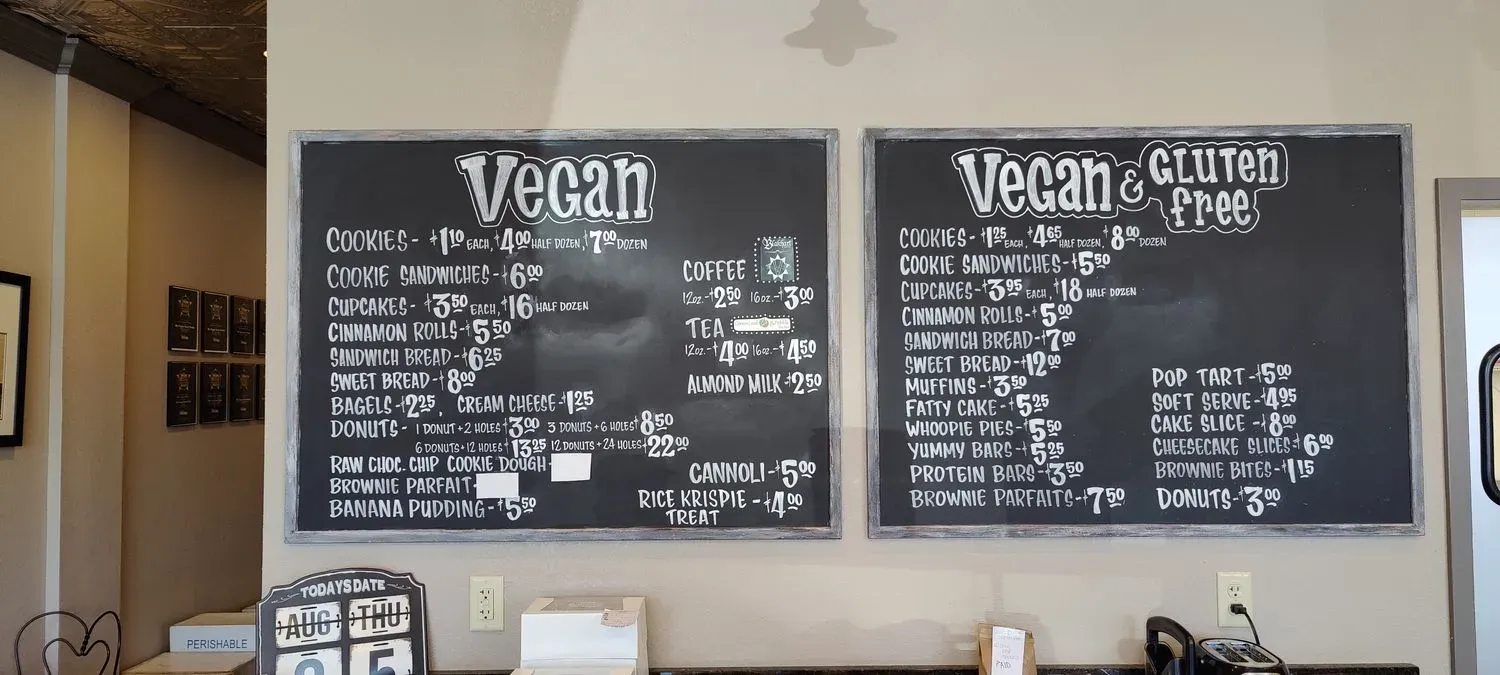 Vegan
COOKIES- $1.10 EACH, $4.00 HALF DOZEN, $7.00 DOZEN
COOKIE SANDWICHES-$6.00
CUPCAKES- $3.50 EACH, $16 HALF DOZEN
CINNAMON ROLLS-$5.50
SANDWICH BREAD-$6.25
SWEET BREAD-$8.00
BAGELS-$2.25, CREAM CHEESE-$1.25
DONUTS- 1 DONUT+2 HOLES $3.00 3 DONUTS+6 HOLES $8.50
6 DONUTS+12 HOLES $13.25 12 DONUTS+24 HOLES $22.00
RAW CHOC. CHIP COOKIE DOUGH-
BROWNIE PARFAIT-
BANANA PUDDING-$5.50
COFFEE
12oz.-$2.50 16oz.-$3.00
TEA
12oz.-$4.00 16oz.-$4.50
ALMOND MILK-$2.50
CANNOLI-$5.00
RICE KRISPIE -$4.00
TREAT
Vegan & GLUTEN
free
COOKIES-$1.25 EACH, $4.65 HALF DOZEN, $8.00 DOZEN
COOKIE SANDWICHES-$5.50
CUPCAKES-$3.95 EACH, $18 HALF DOZEN
CINNAMON ROLLS-$5.00
SANDWICH BREAD-$7.00
SWEET BREAD-$12.00
MUFFINS-$3.50
FATTY CAKE-$5.25
WHOOPIE PIES-$5.50
YUMMY BARS-$5.25
PROTEIN BARS-$3.50
BROWNIE PARFAITS-$7.50
POP TART-$5.00
SOFT SERVE-$4.95
CAKE SLICE -$8.00
CHEESECAKE SLICES-$6.00
BROWNIE BITES-$1.15
DONUTS-$3.00
TODAYS DATE
AUG THU
PERISHABLE
PAID